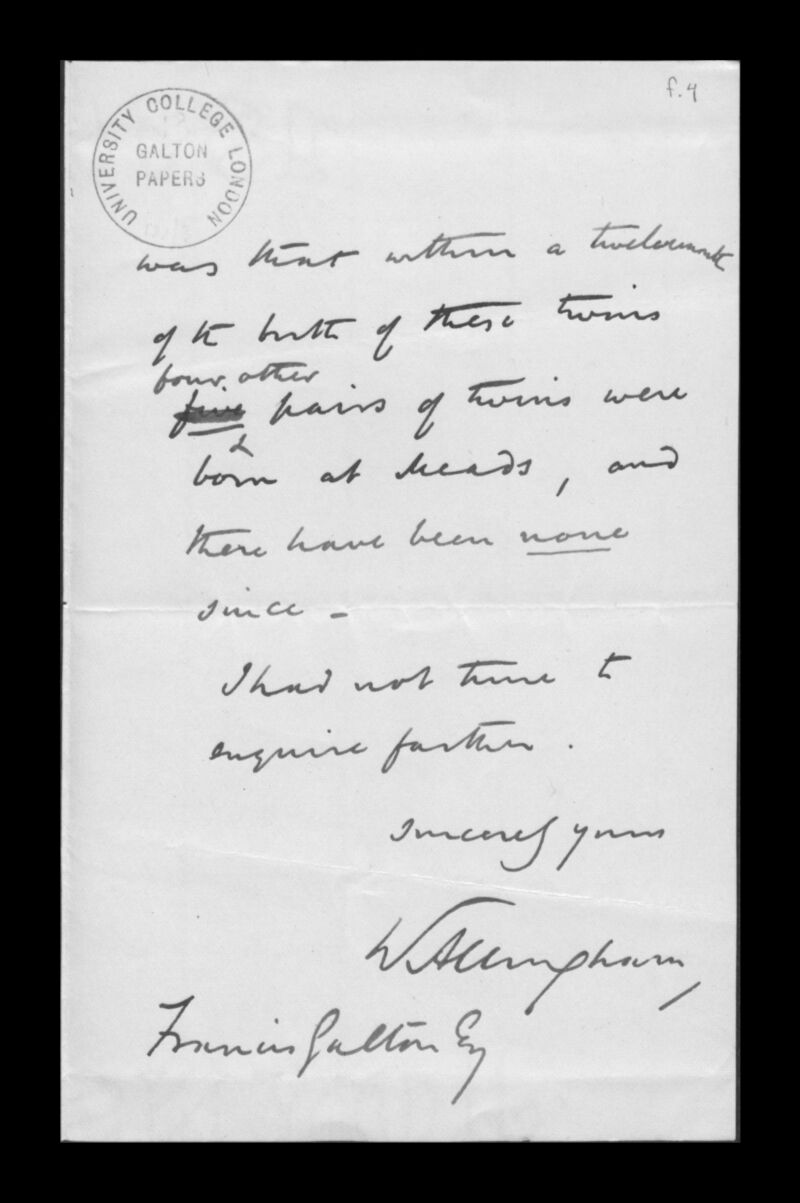 f.4
UNIVERSITY COLLEGE LONDON
GALTON
PAPERS
was that within a twelvemonth
of the birth of these twins
four other
five pairs of twins were
born at Meads, and
there have been none
since –
I had not time to
enquire farther.
Sincerely yours
W Allingham
Francis Galton Esq